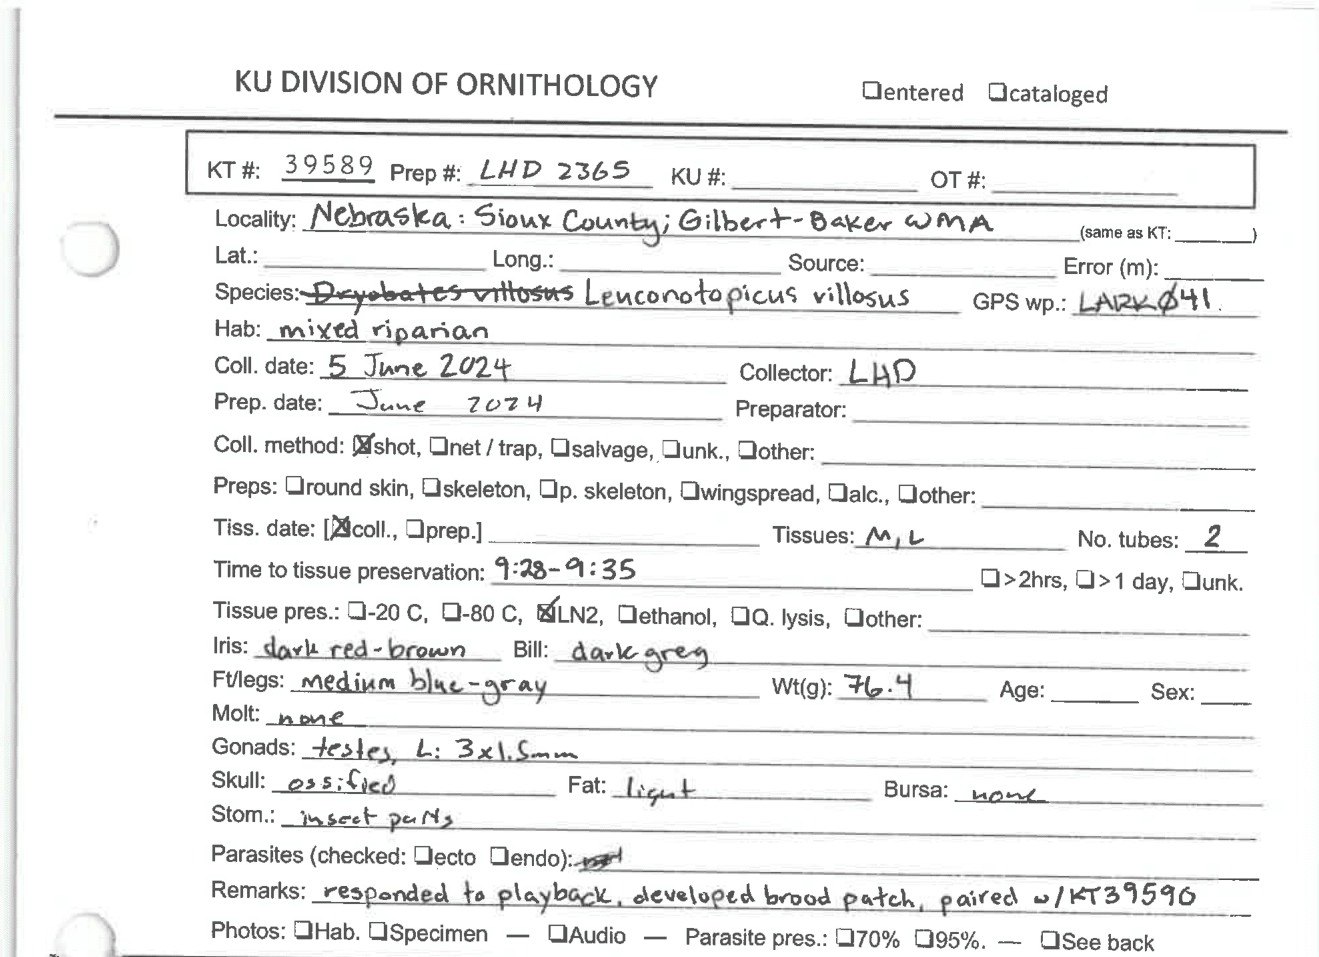 KU DIVISION OF ORNITHOLOGY ❑entered ❑cataloged
KT #: 39589 Prep #: LHD 2365 KU #: OT #:
Locality: Nebraska: Sioux County; Gilbert-Baker WMA (same as KT: )
Lat.: Long.: Source: Error (m):
Species: Dryobates villosus Leuconotopicus villosus GPS wp.: LARKØ41.
Hab: mixed riparian
Coll. date: 5 June 2024 Collector: LHD
Prep. date: June 2024 Preparator:
Coll. method: ☒shot, ❑net / trap, ❑salvage, ❑unk., ❑other:
Preps: ❑round skin, ❑skeleton, ❑p. skeleton, ❑wingspread, ❑alc., ❑other:
Tiss. date: [☒coll., ❑prep.] Tissues: M, L No. tubes: 2
Time to tissue preservation: 9:28-9:35 ❑>2hrs, ❑>1 day, ❑unk.
Tissue pres.: ❑-20 C, ❑-80 C, ☒LN2, ❑ethanol, ❑Q. lysis, ❑other:
Iris: dark red-brown Bill: dark grey
Ft/legs: medium blue-gray Wt(g): 76.4 Age: Sex:
Molt: none
Gonads: testes, L: 3x1.5mm
Skull: ossified Fat: light Bursa: none
Stom.: insect parts
Parasites (checked: ❑ecto ❑endo):
Remarks: responded to playback, developed brood patch, paired w/KT39590
Photos: ❑Hab. ❑Specimen — ❑Audio — Parasite pres.: ❑70% ❑95%. — ❑See back